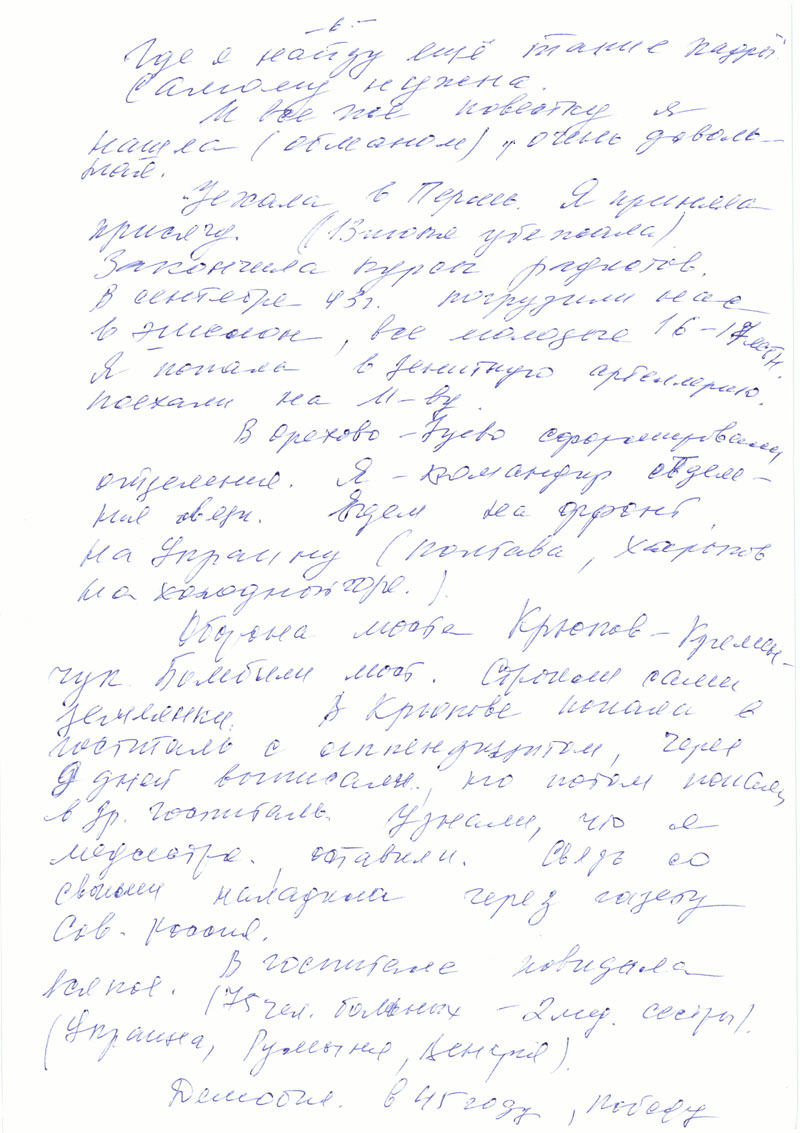 - 6 -
Где я найду ещё такие кадры.
Самому нужна.
И все же повестку я
нашла (обманом), очень доволь-
ная.
Уехала в Пермь. Я приняла
присягу. (13 июня убежала)
Закончила курсы радистов.
В сентябре 43г. погрузили нас
в эшелон, все молодые 16-17летн.
Я попала в зенитную артиллерию.
поехали на М-ву.
В Орехово-Зуево сформировали
отделения. Я - командир отделе-
ния связи. Едем на фронт,
на Украину (Полтава, Харьков
на холодной горе.).
Оборона моста Крюков-Кремен-
чук. Бомбили мост. Строили сами
землянки. В Крюкове попала в
госпиталь с аппендицитом, через
9 дней выписали, но потом попала
в др. госпиталь. Узнали, что я
медсестра, оставили. Связь со
своими наладила через газету
Сов. Россия.
В госпитале повидала
всякое. (75 чел. больных - 2 мед. сестры).
(Украина, Румыния, Венгрия).
Демобил. в 45 году, победу